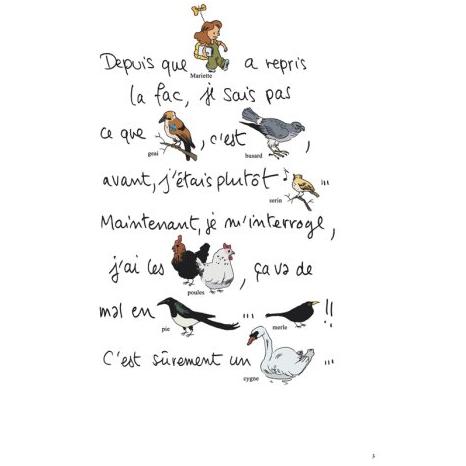 Depuis que Mariette a repris
la fac, je sais pas
ce que geai, c'est busard,
avant, j'étais plutôt serin ...
Maintenant, je m'interroge,
j'ai les poules, ça va de
mal en pie ... merle !!
C'est sûrement un cygne ...
3